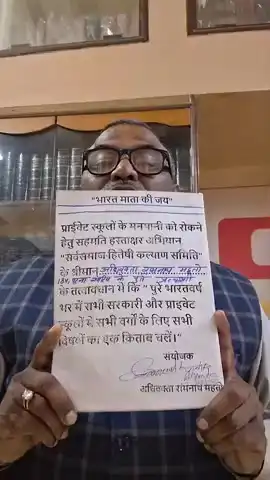 "भारत माता की जय"
प्राईवेट स्कूलों के मनमानी को रोकने
हेतु सहमति हस्ताक्षर अभियान
"सर्वसमाज हितेषी कल्याण समिति"
के श्रीमान अधिवक्ता रामनाथ महतो
के तत्वावधान में कि " पुरे भारतवर्ष
भर में सभी सरकारी और प्राइवेट
स्कूलों में सभी वर्गों के लिए सभी
विषयों का एक किताब चलें।"
संयोजक
अधिवक्ता रामनाथ महतो